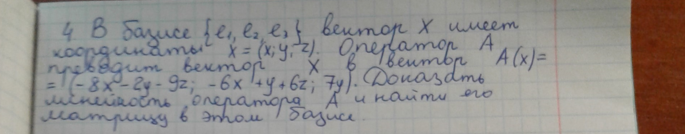 4 В базисе {e₁, e₂, e₃} вектор X имеет
координаты x = (x; y; z). Оператор A
преводит вектор X в вектор A(x)=
= (-8x-2y-9z; -6x+y+6z; 7y). Доказать
линейность оператора A и найти его
матрицу в этом базисе.